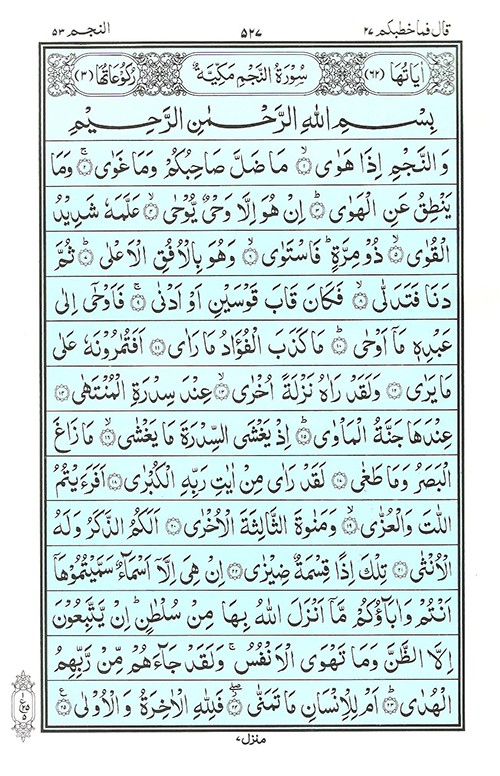 قال فما خطبكم ۲۷ ۵۲۷ النجم ۵۳
اٰیَاتُهَا (۶۲) سُوْرَةُ النَّجْمِ مَكِّیَّةٌ رُكُوْعَاتُهَا (۳)
بِسْمِ اللّٰهِ الرَّحْمٰنِ الرَّحِیْمِ
وَ النَّجْمِ اِذَا هَوٰی ۙ۱ مَا ضَلَّ صَاحِبُكُمْ وَ مَا غَوٰی ۚ۲ وَ مَا
یَنْطِقُ عَنِ الْهَوٰی ؕ۳ اِنْ هُوَ اِلَّا وَحْیٌ یُّوْحٰی ۙ۴ عَلَّمَهٗ شَدِیْدُ
الْقُوٰی ۙ۵ ذُوْ مِرَّةٍ ؕ فَاسْتَوٰی ۙ۶ وَ هُوَ بِالْاُفُقِ الْاَعْلٰی ؕ۷ ثُمَّ
دَنَا فَتَدَلّٰی ۙ۸ فَكَانَ قَابَ قَوْسَیْنِ اَوْ اَدْنٰی ۚ۹ فَاَوْحٰۤی اِلٰی
عَبْدِهٖ مَاۤ اَوْحٰی ؕ۱۰ مَا كَذَبَ الْفُؤَادُ مَا رَاٰی ۱۱ اَفَتُمٰرُوْنَهٗ عَلٰی
مَا یَرٰی ۱۲ وَ لَقَدْ رَاٰهُ نَزْلَةً اُخْرٰی ۙ۱۳ عِنْدَ سِدْرَةِ الْمُنْتَهٰی ۱۴
عِنْدَهَا جَنَّةُ الْمَاْوٰی ؕ۱۵ اِذْ یَغْشَی السِّدْرَةَ مَا یَغْشٰی ۙ۱۶ مَا زَاغَ
الْبَصَرُ وَ مَا طَغٰی ۱۷ لَقَدْ رَاٰی مِنْ اٰیٰتِ رَبِّهِ الْكُبْرٰی ۱۸ اَفَرَءَیْتُمُ
اللّٰتَ وَ الْعُزّٰی ۙ۱۹ وَ مَنٰوةَ الثَّالِثَةَ الْاُخْرٰی ۲۰ اَلَكُمُ الذَّكَرُ وَ لَهُ
الْاُنْثٰی ۲۱ تِلْكَ اِذًا قِسْمَةٌ ضِیْزٰی ۲۲ اِنْ هِیَ اِلَّاۤ اَسْمَآءٌ سَمَّیْتُمُوْهَاۤ
اَنْتُمْ وَ اٰبَآؤُكُمْ مَّاۤ اَنْزَلَ اللّٰهُ بِهَا مِنْ سُلْطٰنٍ ؕ اِنْ یَّتَّبِعُوْنَ
اِلَّا الظَّنَّ وَ مَا تَهْوَی الْاَنْفُسُ ۚ وَ لَقَدْ جَآءَهُمْ مِّنْ رَّبِّهِمُ
الْهُدٰی ؕ۲۳ اَمْ لِلْاِنْسَانِ مَا تَمَنّٰی ۖؗ۲۴ فَلِلّٰهِ الْاٰخِرَةُ وَ الْاُوْلٰی ۲۵ ع
منزل ۷